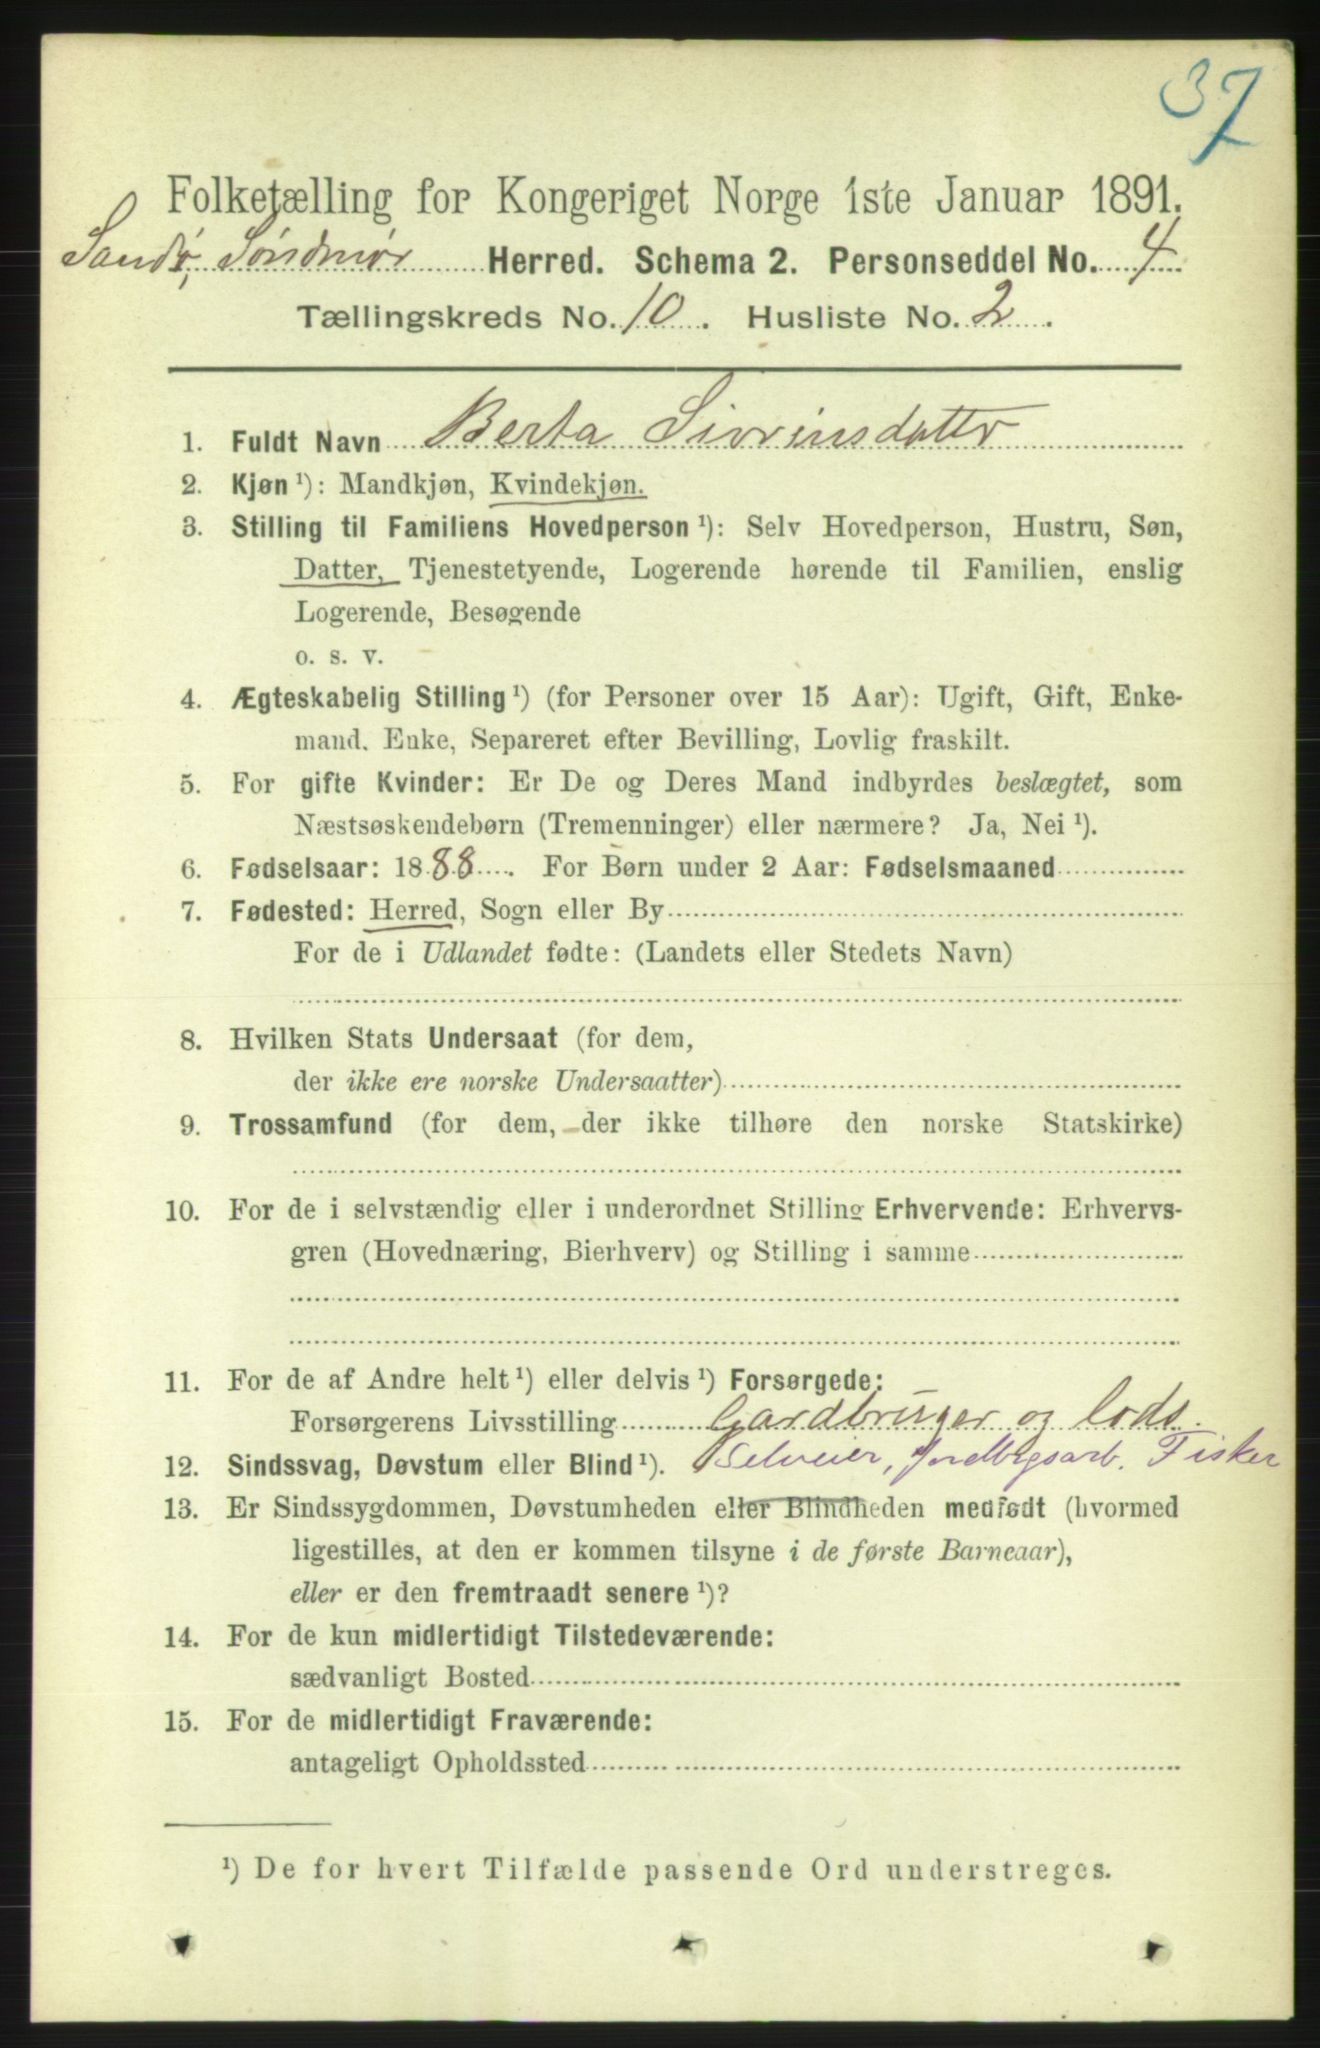 37
Folketælling for Kongeriget Norge 1ste Januar 1891.
Sandø, Søndmør Herred. Schema 2. Personseddel No. 4
Tællingskreds No. 10. Husliste No. 2.
1. Fuldt Navn Berta Sivrinsdatter
2. Kjøn ¹): Mandkjøn, Kvindekjøn.
3. Stilling til Familiens Hovedperson ¹): Selv Hovedperson, Hustru, Søn,
Datter, Tjenestetyende, Logerende hørende til Familien, enslig
Logerende, Besøgende
o. s. v.
4. Ægteskabelig Stilling ¹) (for Personer over 15 Aar): Ugift, Gift, Enke-
mand, Enke, Separeret efter Bevilling, Lovlig fraskilt.
5. For gifte Kvinder: Er De og Deres Mand indbyrdes beslægtet, som
Næstsøskendebørn (Tremenninger) eller nærmere? Ja, Nei ¹).
6. Fødselsaar: 1888. For Børn under 2 Aar: Fødselsmaaned
7. Fødested: Herred, Sogn eller By
For de i Udlandet fødte: (Landets eller Stedets Navn)
8. Hvilken Stats Undersaat (for dem,
der ikke ere norske Undersaatter)
9. Trossamfund (for dem, der ikke tilhøre den norske Statskirke)
10. For de i selvstændig eller i underordnet Stilling Erhvervende: Erhvervs-
gren (Hovednæring, Bierhverv) og Stilling i samme
11. For de af Andre helt ¹) eller delvis ¹) Forsørgede:
Forsørgerens Livsstilling Gardbruger og Lods.
12. Sindssvag, Døvstum eller Blind ¹). Selveier, Jordbrgsarb. Fisker
13. Er Sindssygdommen, Døvstumheden eller Blindheden medfødt (hvormed
ligestilles, at den er kommen tilsyne i de første Barneaar),
eller er den fremtraadt senere ¹)?
14. For de kun midlertidigt Tilstedeværende:
sædvanligt Bosted
15. For de midlertidigt Fraværende:
antageligt Opholdssted
¹) De for hvert Tilfælde passende Ord understreges.